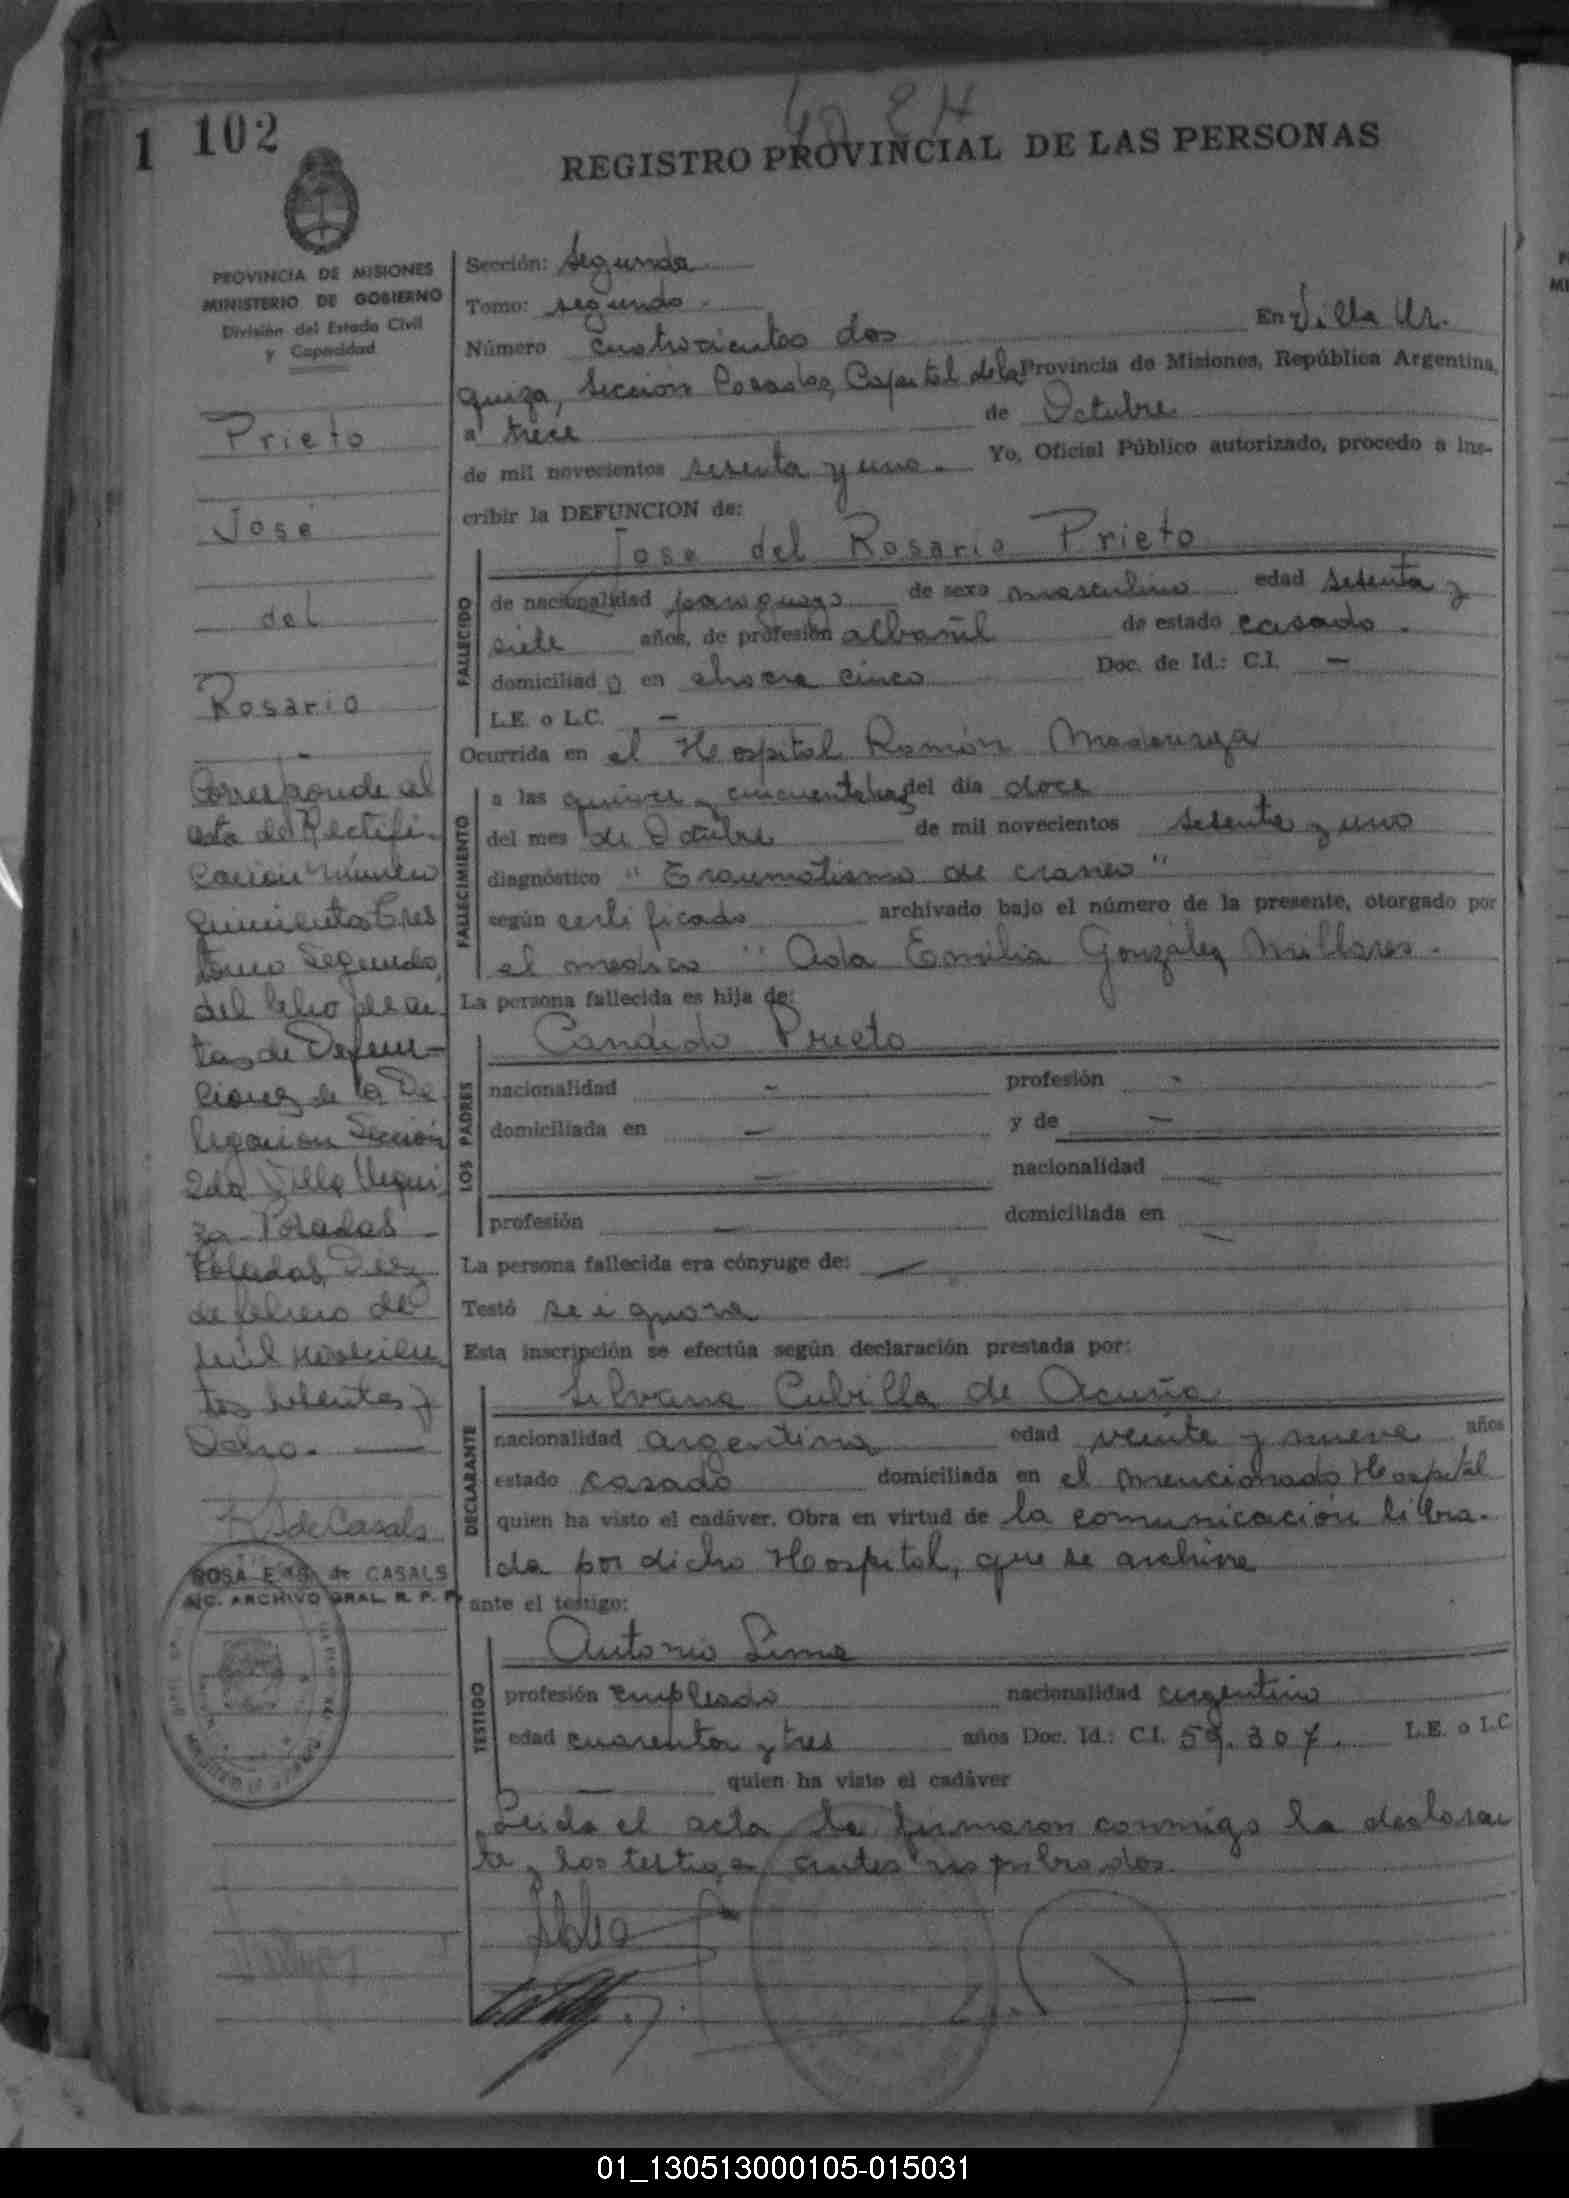 1 102
REGISTRO PROVINCIAL DE LAS PERSONAS
PROVINCIA DE MISIONES
MINISTERIO DE GOBIERNO
División del Estado Civil
y Capacidad
Prieto
José
del
Rosario
Corresponde al
acta de Rectifi-
cación número
quinientos tres
tomo Segundo,
del libro de ac
tas de Defun-
ciones de la De
legacion Sección
2da Villa Urqui
za Posadas
Posadas, Diez
de febrero de
mil novecien
tos setenta y
Ocho.
R S de Casals
ROSA E. S. de CASALS
ARCHIVO GRAL. R. P. P.
Sección: segunda
Tomo: segundo.
Número cuatrocientos dos En Villa Ur.
quiza, Sección Posadas, Capital de la Provincia de Misiones, República Argentina,
a trece de Octubre
de mil novecientos sesenta y uno. Yo, Oficial Público autorizado, procedo a ins-
cribir la DEFUNCION de:
Jose del Rosario Prieto
FALLECIDO
de nacionalidad paraguayo de sexo masculino edad sesenta y
siete años, de profesión albañil de estado casado.
domiciliado en chacra cinco Doc. de Id.: C.I. —
L.E. o L.C. —
Ocurrida en el Hospital Ramón Madariaga
FALLECIMIENTO
a las quince y cincuenta hs del día doce
del mes de Octubre de mil novecientos sesenta y uno
diagnóstico "Traumatismo de craneo"
según certificado archivado bajo el número de la presente, otorgado por
el medico "Ada Emilia González Millares.
La persona fallecida es hija de:
Candido Prieto
LOS PADRES
nacionalidad - profesión -
domiciliada en — y de —
— nacionalidad —
profesión — domiciliada en —
La persona fallecida era cónyuge de: —
Testó se ignora
Esta inscripción se efectúa según declaración prestada por:
Silvana Cubilla de Acuña
DECLARANTE
nacionalidad argentina edad veinte y nueve años
estado casado domiciliada en el mencionado Hospital
quien ha visto el cadáver. Obra en virtud de la comunicación libra-
da por dicho Hospital, que se archiva
ante el testigo:
Antonio Lima
TESTIGO
profesión empleado nacionalidad argentino
edad cuarenta y tres años Doc. Id.: C.I. 59.307. L.E. o L.C
— quien ha visto el cadáver
Leida el acta la firmaron conmigo la declaran
te y los testigos antes nombrados.
01_130513000105-015031